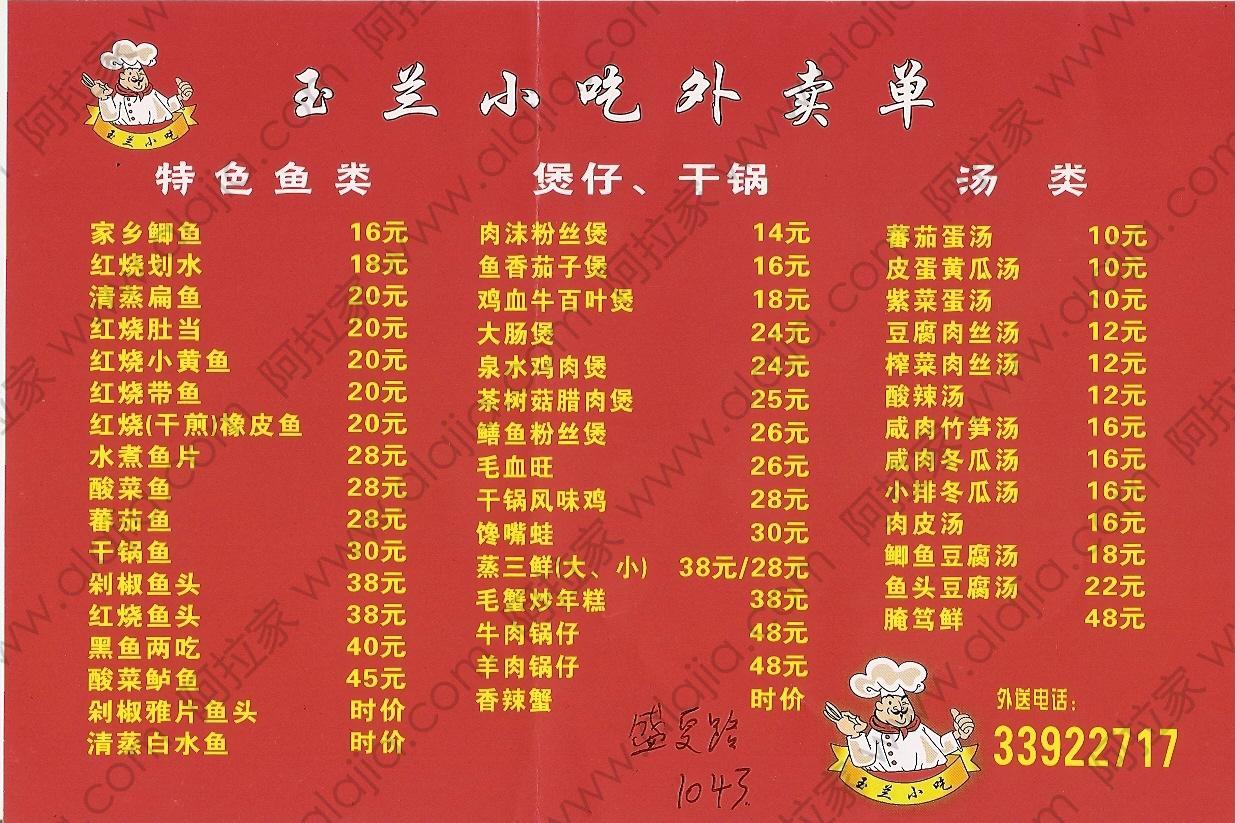 玉兰小吃外卖单
玉兰小吃
特色鱼类
家乡鲫鱼 16元
红烧划水 18元
清蒸扁鱼 20元
红烧肚当 20元
红烧小黄鱼 20元
红烧带鱼 20元
红烧(干煎)橡皮鱼 20元
水煮鱼片 28元
酸菜鱼 28元
蕃茄鱼 28元
干锅鱼 30元
剁椒鱼头 38元
红烧鱼头 38元
黑鱼两吃 40元
酸菜鲈鱼 45元
剁椒雅片鱼头 时价
清蒸白水鱼 时价
煲仔、干锅
肉沫粉丝煲 14元
鱼香茄子煲 16元
鸡血牛百叶煲 18元
大肠煲 24元
泉水鸡肉煲 24元
茶树菇腊肉煲 25元
鳝鱼粉丝煲 26元
毛血旺 26元
干锅风味鸡 28元
馋嘴蛙 30元
蒸三鲜(大、小) 38元/28元
毛蟹炒年糕 38元
牛肉锅仔 48元
羊肉锅仔 48元
香辣蟹 时价
盛夏路
1043
汤类
蕃茄蛋汤 10元
皮蛋黄瓜汤 10元
紫菜蛋汤 10元
豆腐肉丝汤 12元
榨菜肉丝汤 12元
酸辣汤 12元
咸肉竹笋汤 16元
咸肉冬瓜汤 16元
小排冬瓜汤 16元
肉皮汤 16元
鲫鱼豆腐汤 18元
鱼头豆腐汤 22元
腌笃鲜 48元
外送电话:
33922717
玉兰小吃
阿拉家 www.alajia.com